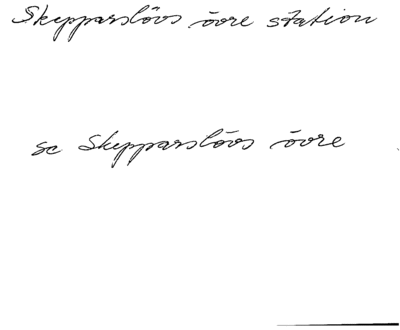 Skepparslövs övre station
se Skepparslövs övre